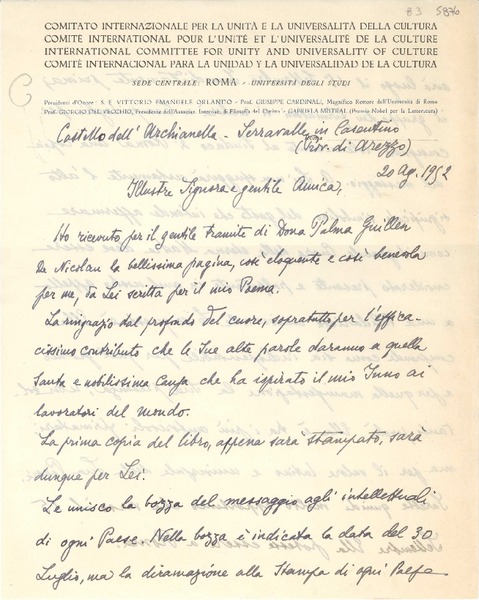 B3 5876
COMITATO INTERNAZIONALE PER LA UNITÀ E LA UNIVERSALITÀ DELLA CULTURA
COMITÉ INTERNATIONAL POUR L'UNITÉ ET L'UNIVERSALITÉ DE LA CULTURE
INTERNATIONAL COMMITTEE FOR UNITY AND UNIVERSALITY OF CULTURE
COMITÉ INTERNACIONAL PARA LA UNIDAD Y LA UNIVERSALIDAD DE LA CULTURA
SEDE CENTRALE: ROMA - UNIVERSITÀ DEGLI STUDI
Presidenti d'Onore: S. E. VITTORIO EMANUELE ORLANDO - Prof. GIUSEPPE CARDINALI, Magnifico Rettore dell'Università di Roma
Prof. GIORGIO DEL VECCHIO, Presidente dell'Associaz. Internaz. di Filosofia del Diritto - GABRIELA MISTRAL (Premio Nobel per la Letteratura)
Castello dell'Archianella - Serravalle in Casentino
(Prov. di Arezzo)
20 Ag. 1952
Illustre Signora e gentile Amica,
Ho ricevuto per il gentile tramite di Dona Palma Guillen
De Nicolau la bellissima pagina, così eloquente e così benevola
per me, da Lei scritta per il mio Poema.
La ringrazio dal profondo del cuore, sopratutto per l'effica-
cissimo contributo che le Sue alte parole daranno a quella
Santa e nobilissima Causa che ha ispirato il mio Inno ai
lavoratori del mondo.
La prima copia del libro, appena sarà stampato, sarà
dunque per Lei.
Le unisco la bozza del messaggio agli intellettuali
di ogni Paese. Nella bozza è indicata la data del 30
Luglio, ma la diramazione alla Stampa di ogni Paese